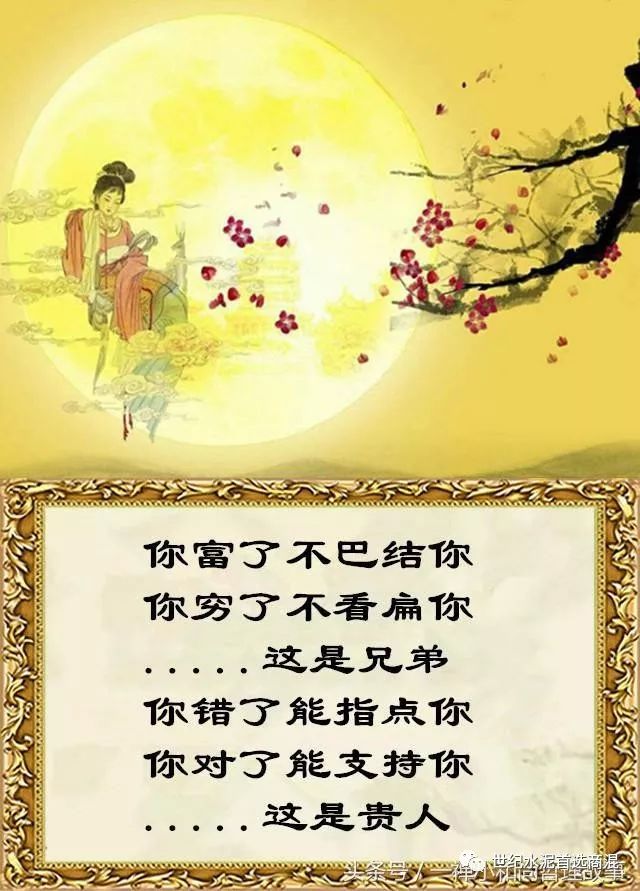 你富了不巴结你
你穷了不看扁你
.....这是兄弟
你错了能指点你
你对了能支持你
.....这是贵人
世纪水泥首选商混
头条号/一禅小和尚哲理故事